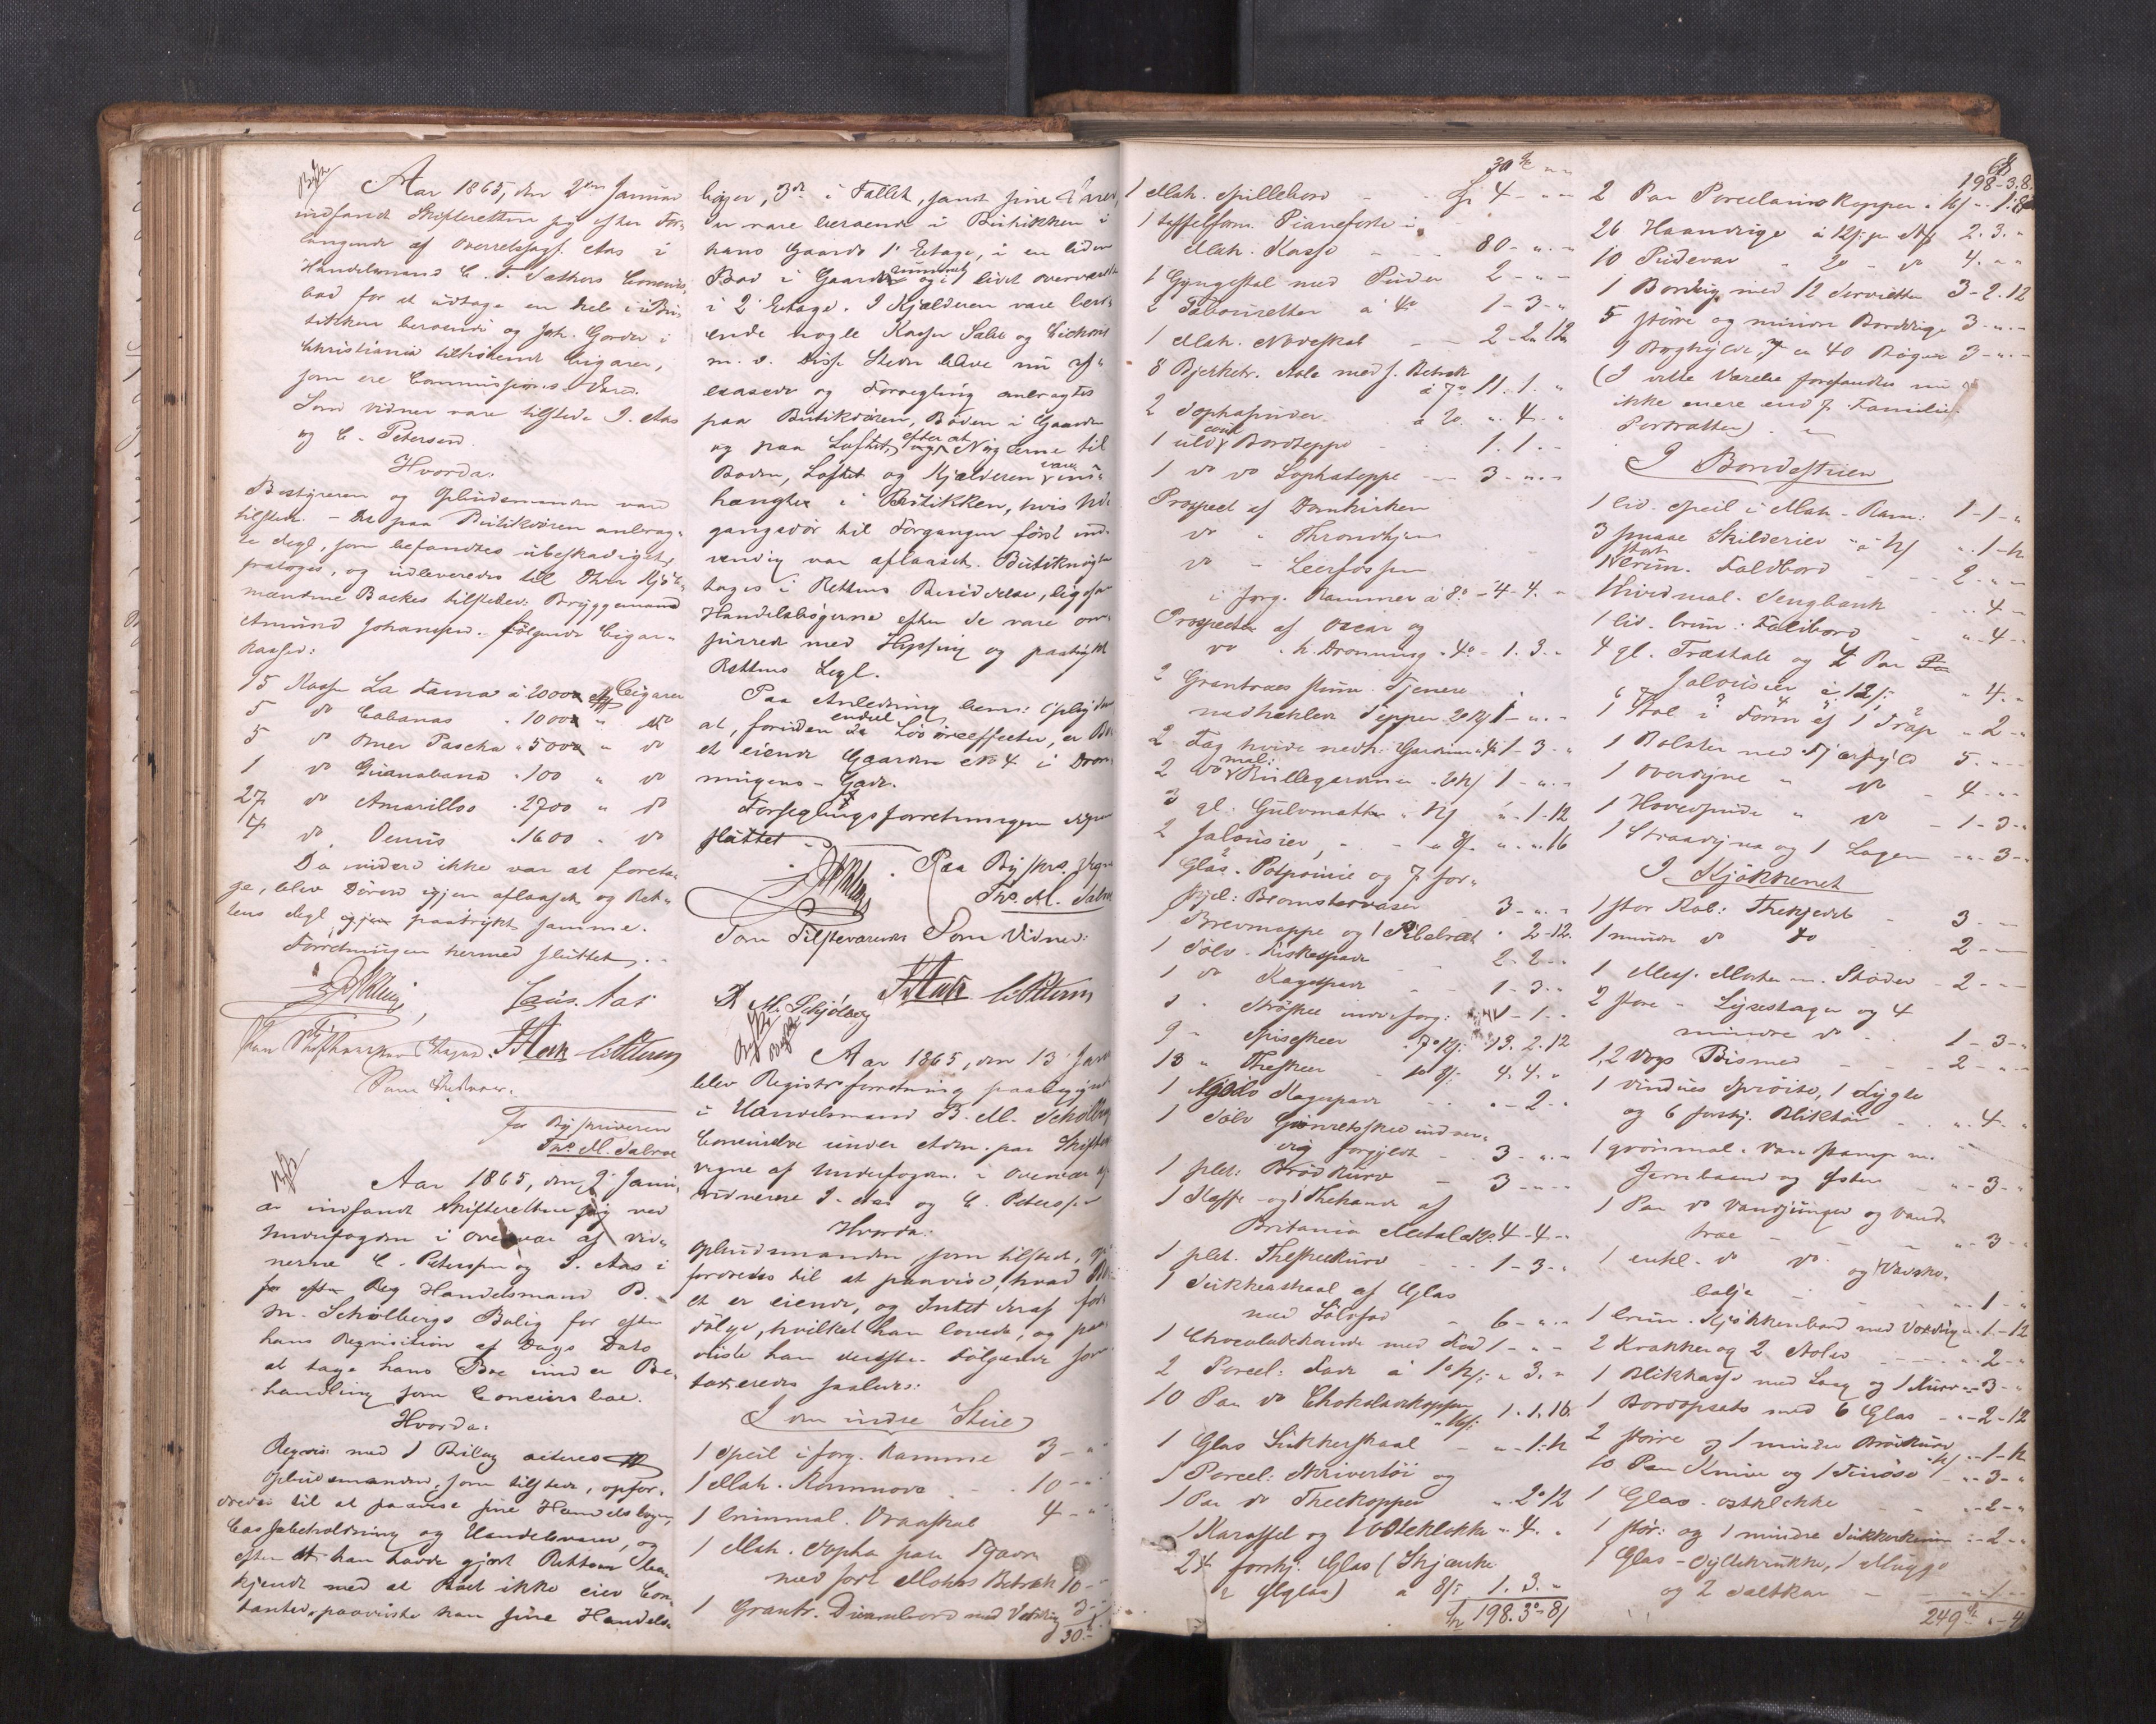 Aar 1865, den 2den Januar
indfandt Skifteretten sig efter For-
langende af Overretssagf. Aas i
Handelsmand C. T. Sæthers Concurs-
bod for at udtage en Deel i Bu-
tikken beroende og Joh. Gorder i
Christiania tilhørende Cigarer,
som ere Commissions-Vare.
Som Vidner vare tilstede J. Aas
og C. Petersen
Hvorda:
Bestyreren og Opbudsmanden vare
tilstede. - Det paa Butikdøren anbrag-
te Segl, som befandtes ubeskadiget,
fratoges, og udleveredes til Dhrr Kjøb-
mændene Backes tilstedev: Bryggemand
Amund Johansen følgende Cigar-
kasser:
15 Kasser La Fama à 2000 Cigarer
5 do Cabanas " 1000 " do
5 do Omer Pascha " 5000 " do
1 do Guanabana " 100 " do
27 do Amarillos " 2700 " do
4 do Venus " 1600 " do
Da videre ikke var at foreta-
ge, blev Døren igjen aflaaset og Ret-
tens Segl igjen paatrykt samme.
Forretningen hermed sluttet.
Laur. Aas
J Aas C Petersen
For Byskriveren
Ths. M. Salroe
Aar 1865, den 9 Janu-
ar indfandt Skifteretten sig ved
Underfogden i Overvær af Vid-
nerne C. Petersen og J. Aas i
for efter Beg Handelsmand B.
M. Schølbergs Bolig for efter
hans Reqvisition af Dags Dato
at tage hans Boe under Be-
handling som Concursboe.
Hvorda:
Reqvis: med 1 Bilag acteres
Opbudsmanden, som tilstede, opfor-
dredes til at paavise sine Handelsbøger,
Cassabeholdning og Handelsvarer, og
efter at han havde gjort Retten be-
kjendt med at Boet ikke eier Con-
tanter, paaviste han sine Handels-
bøger, 3de i Tallet, samt sine Varer,
der vare beroende i Butikken i
hans Gaards 1 Etage, i en liden
Bod i Gaardsrummet og i 1 lidet Værelse
i 2 Etage. I Kjælderen vare bero-
ende nogle Kasser Sæbe og Cichorie
m. v. Disse Steder bleve nu af-
laasede og Forsegling anbragtes
paa Butikdøren, Boden i Gaarden
og paa Loftet, efter at Nøglerne til
Boden, Loftet og Kjælderen vare ind-
hængte i Butikken, hvis Ud-
gangsdør til Forgangen først ind-
vendig var aflaaset. Butiknøglen
toges i Rettens Besiddelse, ligesom
Handelsbøgerne efter de vare om-
snørede med Hyssing og paatrykt
Rettens Segl.
Paa Anledning bem: Opbydere
at, foruden endeel Løsøreeffecter, er Bo-
et eiende Gaarden No 4 i Dron-
ningens-Gade.
Forseglingsforretningen dermed
sluttet
Paa Byskrs. Vegne
Ths. M. Salroe
Som Tilstedeværende Som Vidner:
B M. Schjølberg J Aas C Petersen
Aar 1865, den 13 Januar
blev Registr.forretning paabegyndt
i Handelsmand B. M. Schølbergs
Concursboe under Adm. paa Skifterettens
vegne af Underfogden i Overvær af
Vidnerne J. Aas og C. Petersen
Hvorda:
Opbudsmanden, som tilstede, op-
fordredes til at paavise, hvad Bo-
et er eiende, og Intet deraf for-
dølge, hvilket han lovede, og paa-
viste han derefter Følgende som
taxeredes saaledes:
I den indre Stue
1 Speil i forg. Ramme 3 - "
1 Mah. Kommode 10 - "
1 brunmal. Draaskab 4 - "
1 Mah. Sopha paa Fjædre
med sort Mohrs Betræk 10 -
1 Grantr. Divanbord med Voxdug 3 -
30. -
30 " "
1 Mah. Spillebord 4 - "
1 taffelform. Pianoforte i
Mah. Kasse 80 - " -
1 Gyngestol med Puder 2 - "
2 Tabouretter à 4o 1 - 3 - "
1 Mah. Nodeskab 2 - 2 - 12
8 Bjerketr. Stole med s. Betræk
à 7o 11. 1. "
2 Sophapuder à 2o ". 4. "
1 uldent Bordteppe 1. 1. -
1 do do Sophateppe 3 - " -
Prospect af Domkirken
do " Throndhjem
do - Leerfossen
i forg. Rammer à 8o - 4 - 4. "
Prospecter af Oscar og
do . h. Dronning . 4o - 1. 3. "
2 Grantræes
nedhæklede Tepper 1 - " -
2 Fag hvide nedh. Gardiner 1 - 3 - "
2 do mal: Rullegardiner 1 - " -
3 gl. Gulvmatter " - 1 - 12
2 Jalousier " . " 16
1 Glas-Potpourie og 7 for-
skjel: Blomstervaser 3 - " -
1 Brevmappe og 1 " 2 - 12.
1 Sølv-Fiskespade 2 - 2 - "
1 do Kagespade 1 - 3 - "
1 " Strøskee indv. forg: " - 1 - "
9 " Spiseskeer 13. 2. 12
13 " Theskeer 4. 4. "
1 Kagespade " - 2 - "
1 Sølv Grønretsskee indven-
dig forgyldt 3 - " -
1 plet: Brødkurv 3 - " -
1 Kaffe- og 1 Thekande af
Britania Metal 4 - 4 - "
1 plet. Theskeekurv 1 - 3 - "
1 Sukkerskaal af Glas
med Sølvfod 6 - " -
1 Chocoladekande med Fad 1 - " -
2 Porcel: Fade à " 3. "
10 Par do Chokoladekopper 1. 1. 16.
1 Glas Sukkerskaal " - 1 - 12
1 Porcel: Skrivertøi og
1 Par do Theekopper " 2 - 12
1 Karaffel og 1 Osteklokke " 4. "
24 forskj. Glas (Skjænke
& Ølglas) à 8 1. 3. "
198. 3 - 8
68
198 - 3. 8.
2 Par Porcelainskopper " 1. 8
26 Haandklge à 12 pr St 2. 3. "
10 Pudevar " 20 - do 4. " "
1 Bordug med 12 Servietter 3 - 2. 12
5 større og mindre Borddüge 3 - " -
1 Boghylde, 7 a 40 Bøger 3 - " -
(I dette Værelse forefandtes nu
ikke mere end 7 Familie-
Portrætter)
I Bondestuen
1 lid. Speil i Mah. Ram: 1 - 1 - "
3 smaae Skilderier à " 1 - 12
1 stort brun. Faldbord 2. " "
1 hvidmal. Sengbænk " - 4 -
1 lid. brun: Faldbord " - 4 -
4 gl. Træstole og 2 Par
Jalousier à 12 " 4. "
1 Stol i Form af 1 Trap " 2 - "
1 Bolster med Fj. arfyld 5. " -
1 Overdyne " do - 4 - "
1 Hovedpude " do - 1 - 3 - "
1 Straadyna og 1 Lagen " 3 - "
I Kjøkkenet
1 stor Kob: Thekjedel 3 -
1 mindre do do 2 -
1 Mess. Morter m. Støder - 2 - -
2 store - Lysestager og 4
mindre do 1 - 3 - "
1, 2 Vogs Bismer 2 - -
1 Vindues Sprøite, 1 Lygte
og 6 forskj. Bliktøi " 4. "
1 grønmal. Vandstamp m.
Jernbaand og Øster " - 3 - "
1 Par do Vandspanger og Vand-
træe " - 3 - "
1 enkl. do do og Vadske-
balje " - 1 - "
1 brun. Kjøkkenbord med Voxdug " 1 - 12
2 Krakker og 2 Stoler " - 2 - "
1 Blikkasse med Laag og 1 Kurv " - 3 - "
1 Bordopsats med 6 Glas " - 2 - 12
2 større og 1 mindre Brødkurv " - 1 - 12
10 Par Knive og 1 " - 3 - "
1 Glas-osteklokke " - 2 - "
1 stør: og 1 mindre Sukkerkumme " - 2 - "
1 Glas-Syltekrukke, 1 Mugge
og 2 Saltkar " - 1 -
249 " - 4